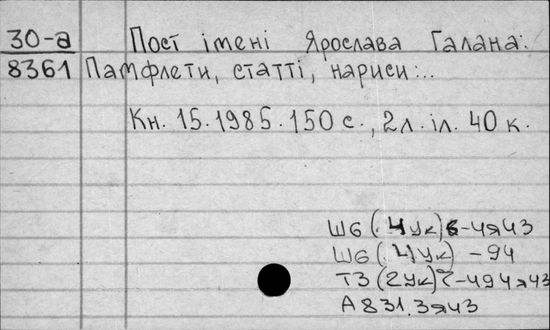 30-а Пост імені Ярослава Галана:
8361 Памфлети, статті, нариси:..
Кн. 15. 1985. 150 с., 2 л. іл. 40 к.
Ш6(4Ук)6-4я43
Ш6(4Ук) -94
Т3(2Ук)7-494я43
А831.3я43